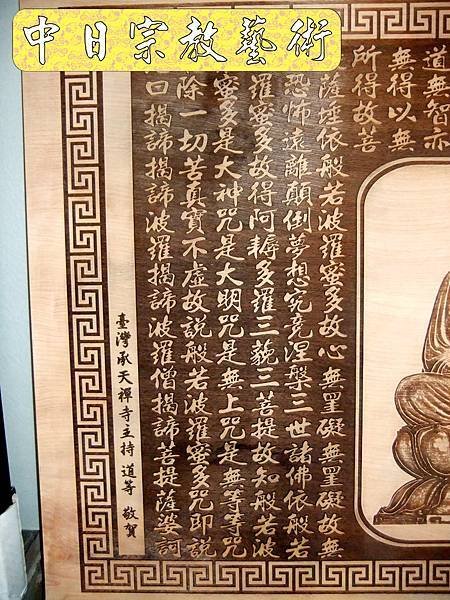 中日宗教藝術
道無智亦
無得以無
所得故菩
薩埵依般若波羅蜜多故心無罣礙無罣礙故無
恐怖遠離顛倒夢想究竟涅槃三世諸佛依般若
羅蜜多故得阿耨多羅三藐三菩提故知般若波
蜜多是大神咒是大明咒是無上咒是無等等咒
除一切苦真實不虛故說般若波羅蜜多咒即說
曰揭諦揭諦波羅揭諦波羅僧揭諦菩提薩婆訶
臺灣承天禪寺主持 道等 敬賀